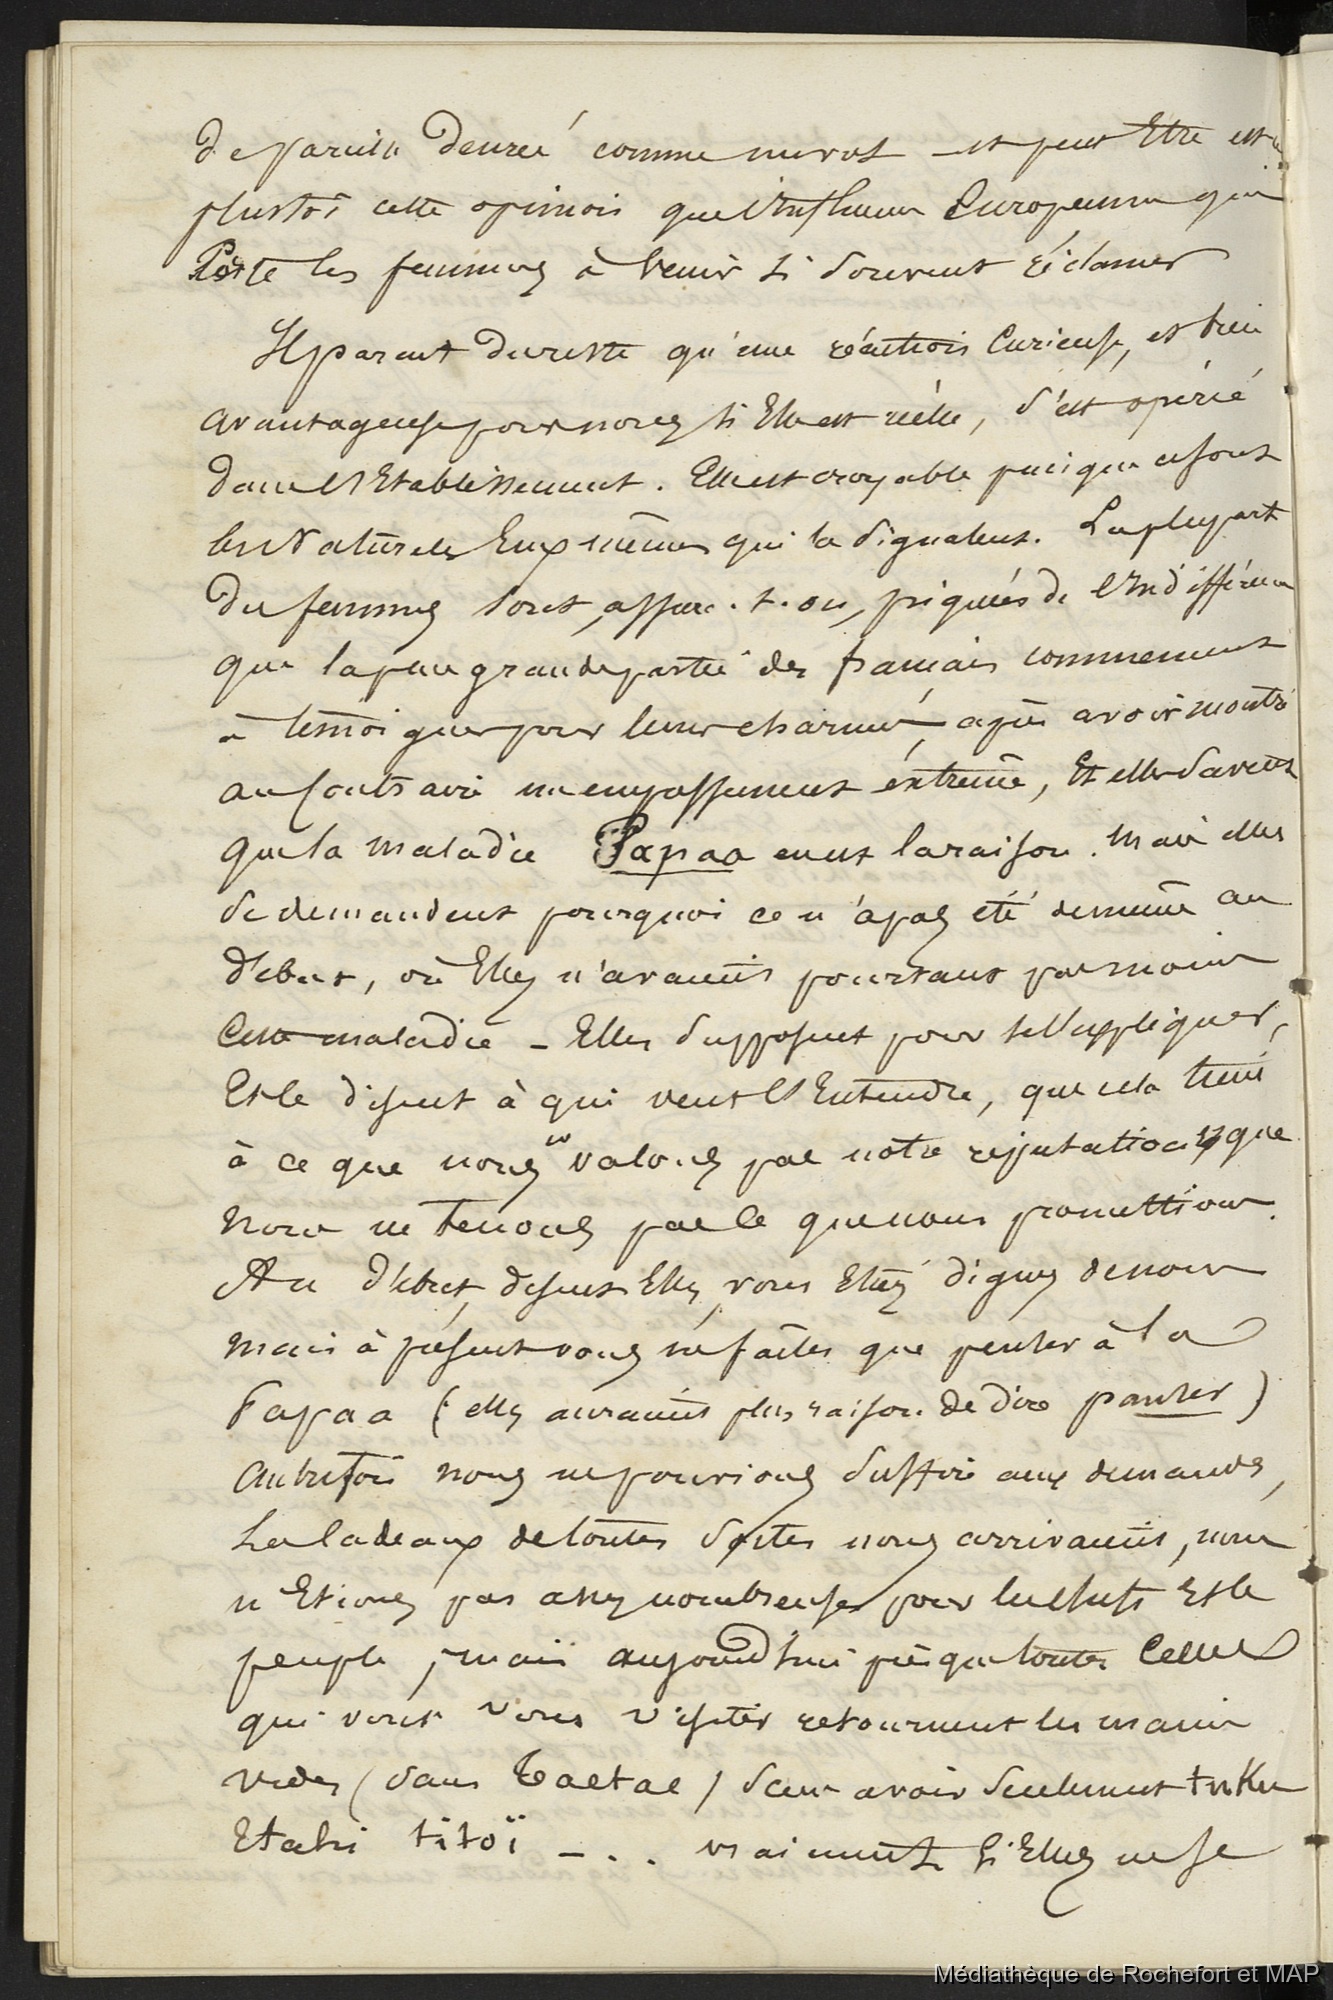 de pareille denrée comme nous — et peut Etre est ce
plustôt cette opinion que l'Influence Européenne qui
Porte les femmes à Venir si souvent réclamer
Il parait du reste qu'une réaction Curieuse, et bien
avantageuse pour nous si Elle est réelle, s'est opérée
dans l'Etablissement. Elle est croyable puisque ce sont
les Naturels Eux mêmes qui la signalent. La plupart
des femmes sont, assure-t-on, piquées de l'Indifférence
que la plus grande partie des français commencent
à témoigner pour leurs charmes, après avoir montré
au contraire un empressement éxtrême, Et elles savent
que la maladie Papaa en est la raison. Mais elles
se demandent pourquoi ce n'a pas été de même au
début, où Elles n'avaient pourtant pas moins
Cette maladie — Elles supposent pour se l'expliquer,
Et le disent à qui veut l'Entendre, que cela tient
à ce que nous ne valons pas notre réputation, que
nous ne tenons pas ce que nous promettions.
Au début, disent Elles, vous Etiez dignes de nous
mais à présent vous ne faites que penser à la
Papaa (elles auraient plus raison de dire panser)
autrefois nous ne pouvions suffire aux demandes,
Les Cadeaux de toutes sortes nous arrivaient, nous
n'Etions pas assez nombreuses pour les chefs Et le
peuple, mais aujourd'hui presque toutes Celles
qui vont vous visiter retournent les mains
vides (sans Taetae) sans avoir seulement
Etahi titoï — . . vraiment si Elles ne se
Médiathèque de Rochefort et MAP